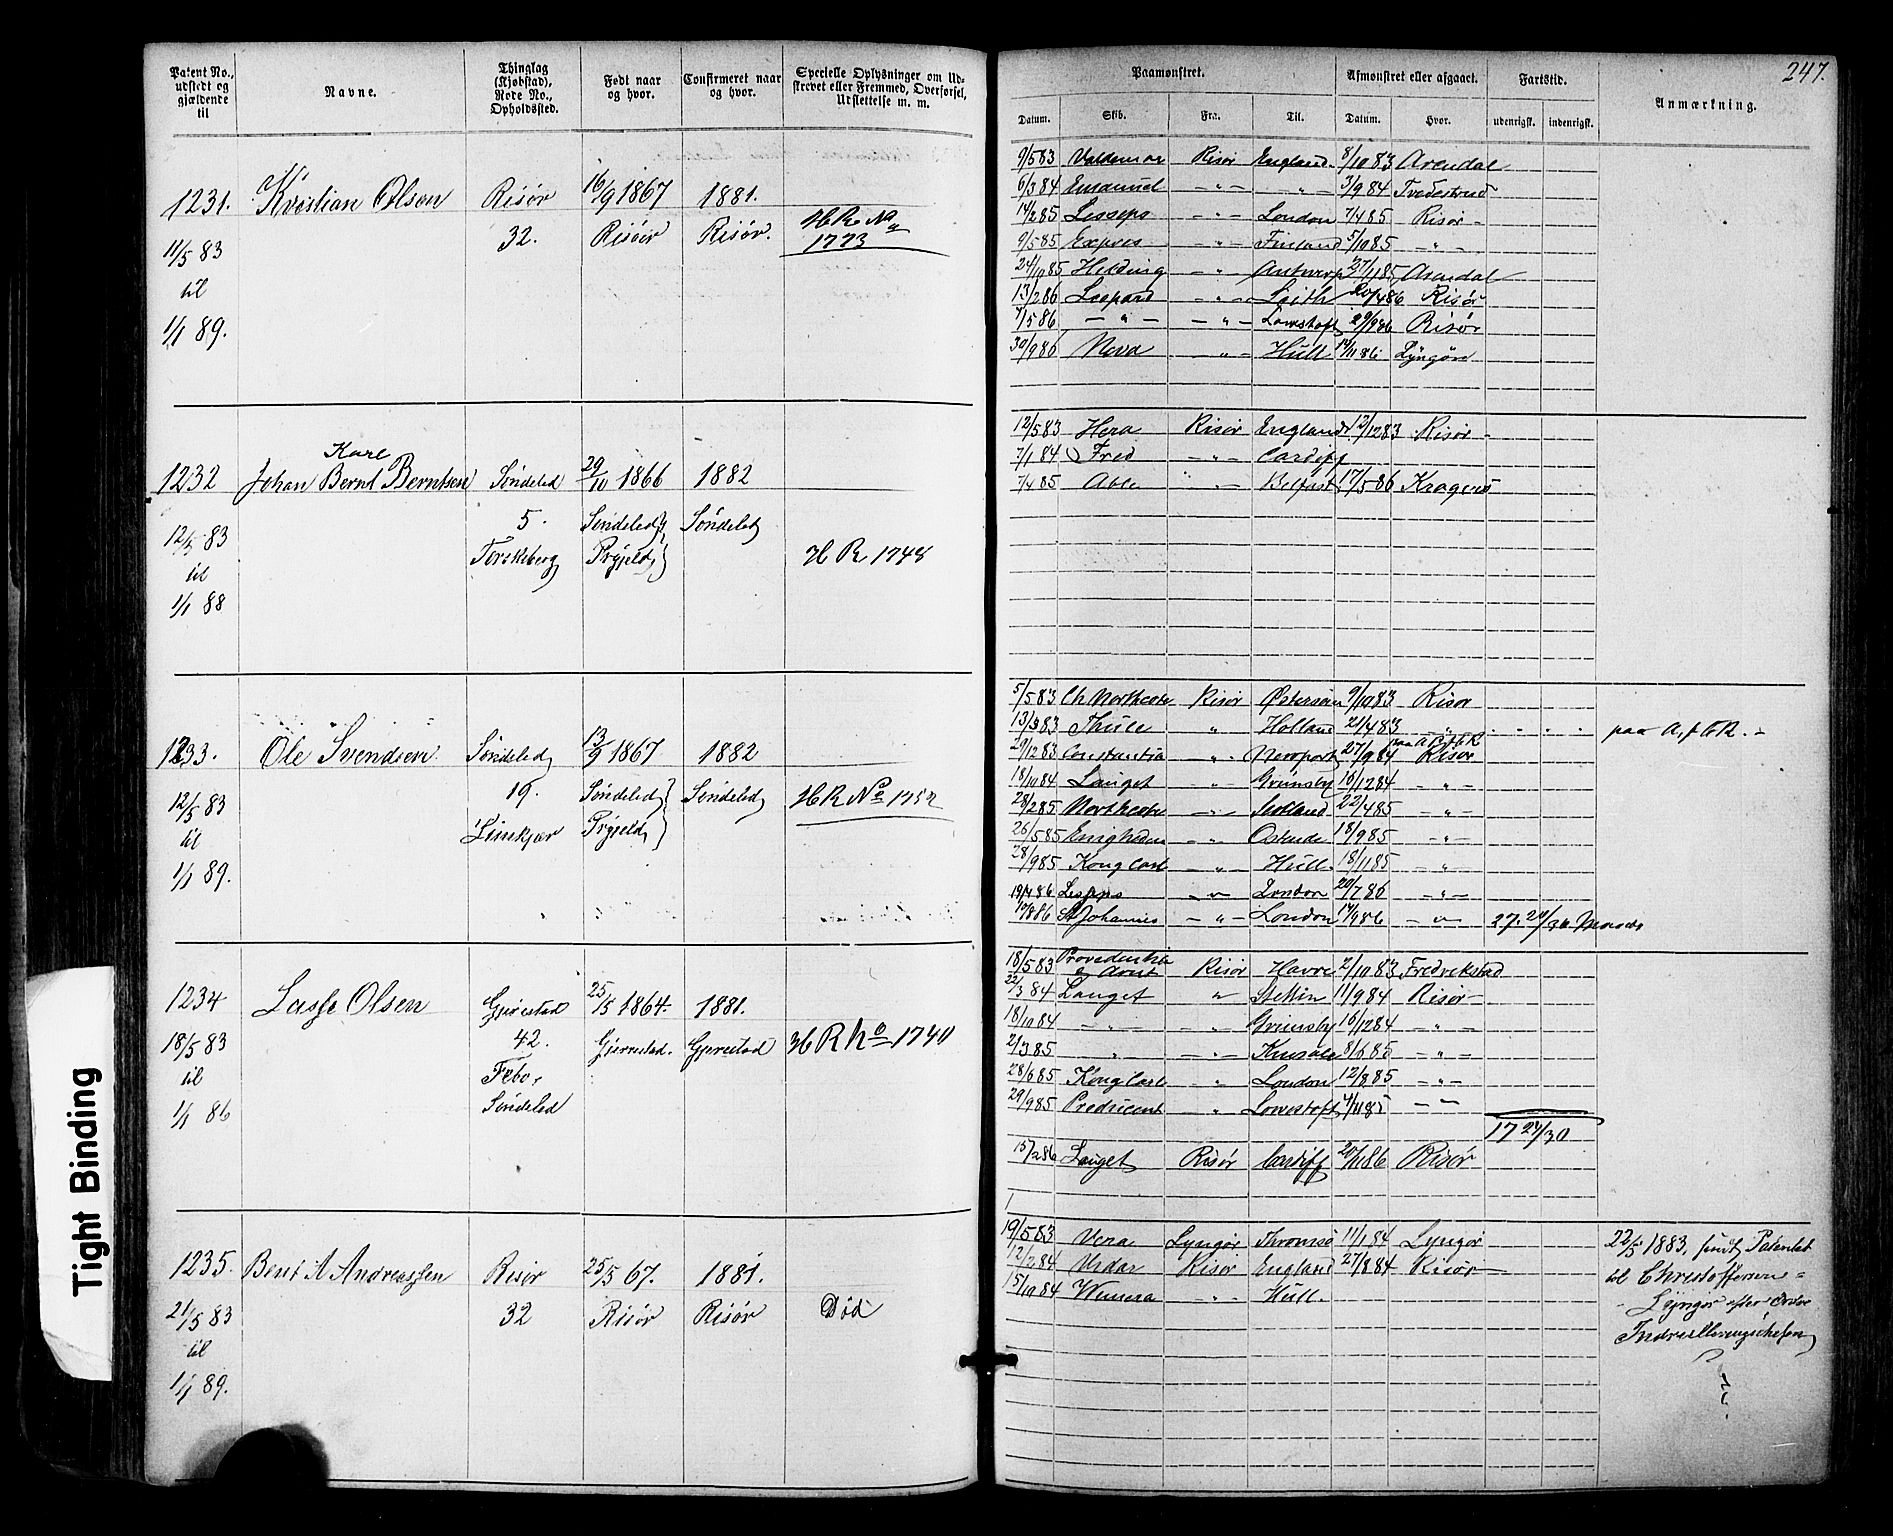 247.
Patent No., udstedt og gjældende til
Navne.
Thinglag (Kjøbstad), Rode No., Opholdssted.
Født naar og hvor.
Confirmeret naar og hvor.
Specielle Oplysninger om Udskrevet eller Fremmed, Overførsel, Udslettelse m. m.
Paamønstret.
Afmønstret eller afgaaet.
Fartstid.
Anmærkning.
Datum. Skib. Fra. Til. Datum. Hvor. udenrigsk. indenrigsk.
1231. Kristian Olsen Risør 16/9 1867 1881.
32. Risør Risør. H R No 1773
11/5 83
til
1/1 89.
9/5 83 Valdemar Risør England 8/10 83 Arendal
6/3 84 Emanuel - " - " - 3/9 84 Tvedestrand
14/2 85 Lesseps - " - London 7/4 85 Risør -
9/5 85 Expres - " - Finland 5/10 85 - " -
24/10 85 Hilding - " - Antwerp 27/11 85 Arendal
13/2 86 Leopard - " - Leith 20/4 86 Risør
7/5 86 - " - - " - Lowestoft 29/9 86 Risør
30/9 86 Nova " - Hull 14/11 86 Lyngør
1232 Johan Karl Bernt Berntsen Søndeled 29/10 1866 1882
5. Søndeled Søndeled
12/5 83
Torskeberg Prgjeld H R 1748
til
1/1 88
12/5 83 Hera Risør England 13/12 83 Risør
7/1 84 Fred - " - Cardiff
7/4 85 Able " - Belfast 17/5 86 Kragerø
1233. Ole Svendsen Søndeled 13/9 1867. 1882
19. Søndeled Søndeled H R No 1752
12/5 83
til Limkjær Prgjeld
1/1 89.
5/5 83 Ch Northcote Risør Østersøen 9/10 83 Risør
13/3 83 Thule " Holland 21/4 83 " paa A, f F R. -
29/12 83 Constantia " Newport 27/9 84 Risør
18/10 84 Lauget " Grimsby 16/12 84 - " -
28/2 85 Northcote - " - 22/4 85 - " -
26/5 85 Enigheden - " - Ostende 18/9 85 - " -
28/9 85 Kong Carl " Hull 18/11 85 "
19/4 86 Lesseps - " - London 20/7 86 - " -
10/8 86 St Johannes - " - London 14/9 86 - " - 27. 20/30 Maaneder
1234 Lasse Olsen Gjerestad 25/5 1864. 1881.
18/5 83 42. Gjerestad. Gjerestad H R No 1740
til Febo,
1/1 86 Søndeled
18/5 83 Providentia Risør Havre 2/10 83 Fredrikstad
22/3 84 Lauget " Stettin 11/9 84 Risør -
18/10 84 - " - - " - Grimsby 16/12 84 - " -
2/3 85 " - " - Kinsale 8/6 85 - " -
28/6 85 Kong Carl " London 12/8 85 - " -
29/9 85 - " Lowestoft 4/11 85 - " -
17 24/30
15/2 86 Lauget Risør Cardiff 20/11 86 Risør
1235. Bent A Andreassen Risør 25/5 67. 1881.
21/5 83 32 Risør Risør Død
til
1/1 89.
19/5 83 Vera Lyngør Thromsø 11/1 84 Lyngør
12/2 84 Vidar Risør England 27/8 84 Risør
15/10 84 - " - Hull.
22/5 1883, sendt Patentet
til Christoffersen =
Lyngør efter Ordre
Indrulleringschefen
Tight Binding